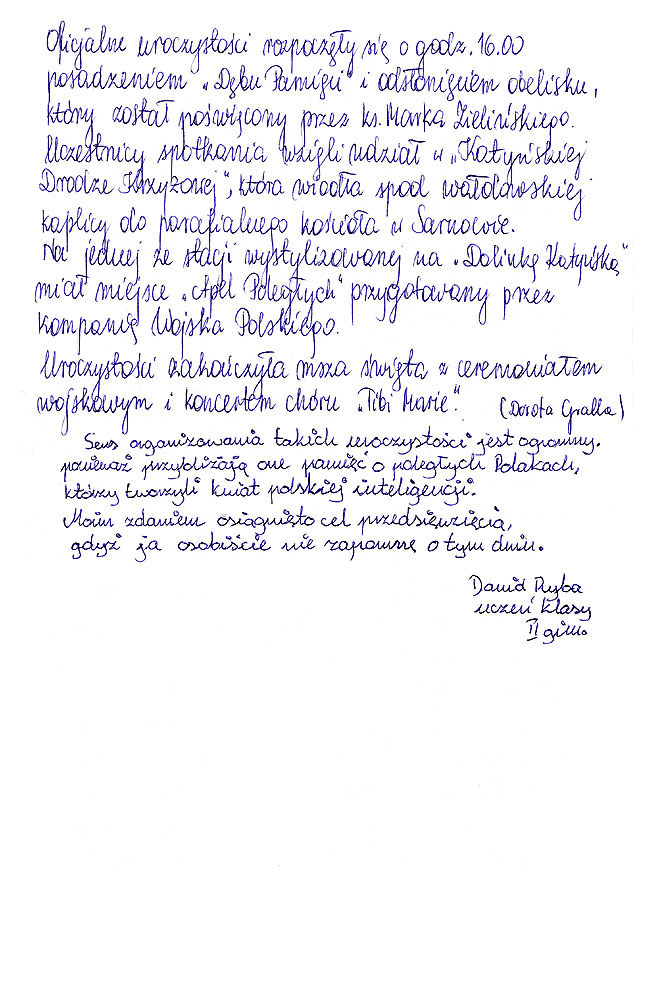 Oficjalne uroczystości rozpoczęły się o godz. 16.00
posadzeniem „Dębu Pamięci" i odsłonięciem obelisku,
który został poświęcony przez ks. Marka Zielińskiego.
Uczestnicy spotkania wzięli udział w „Katyńskiej
Drodze Krzyżowej", która wiodła spod wałdowskiej
kaplicy do parafialnego kościoła w Sarnowie.
Na jednej ze stacji wystylizowanej na „Dolinkę Katyńską"
miał miejsce „Apel Poległych" przygotowany przez
kompanię Wojska Polskiego.
Uroczystości zakończyła msza święta z ceremoniałem
wojskowym i koncertem chóru „Tibi Marie". (Dorota Gralla)
Sens organizowania takich uroczystości jest ogromny.
ponieważ przybliżają one pamięć o poległych Polakach,
którzy tworzyli kwiat polskiej inteligencji.
Moim zdaniem osiągnięto cel przedsięwzięcia,
gdyż ja osobiście nie zapomnę o tym dniu.
Dawid Ryba
uczeń klasy
II gim.